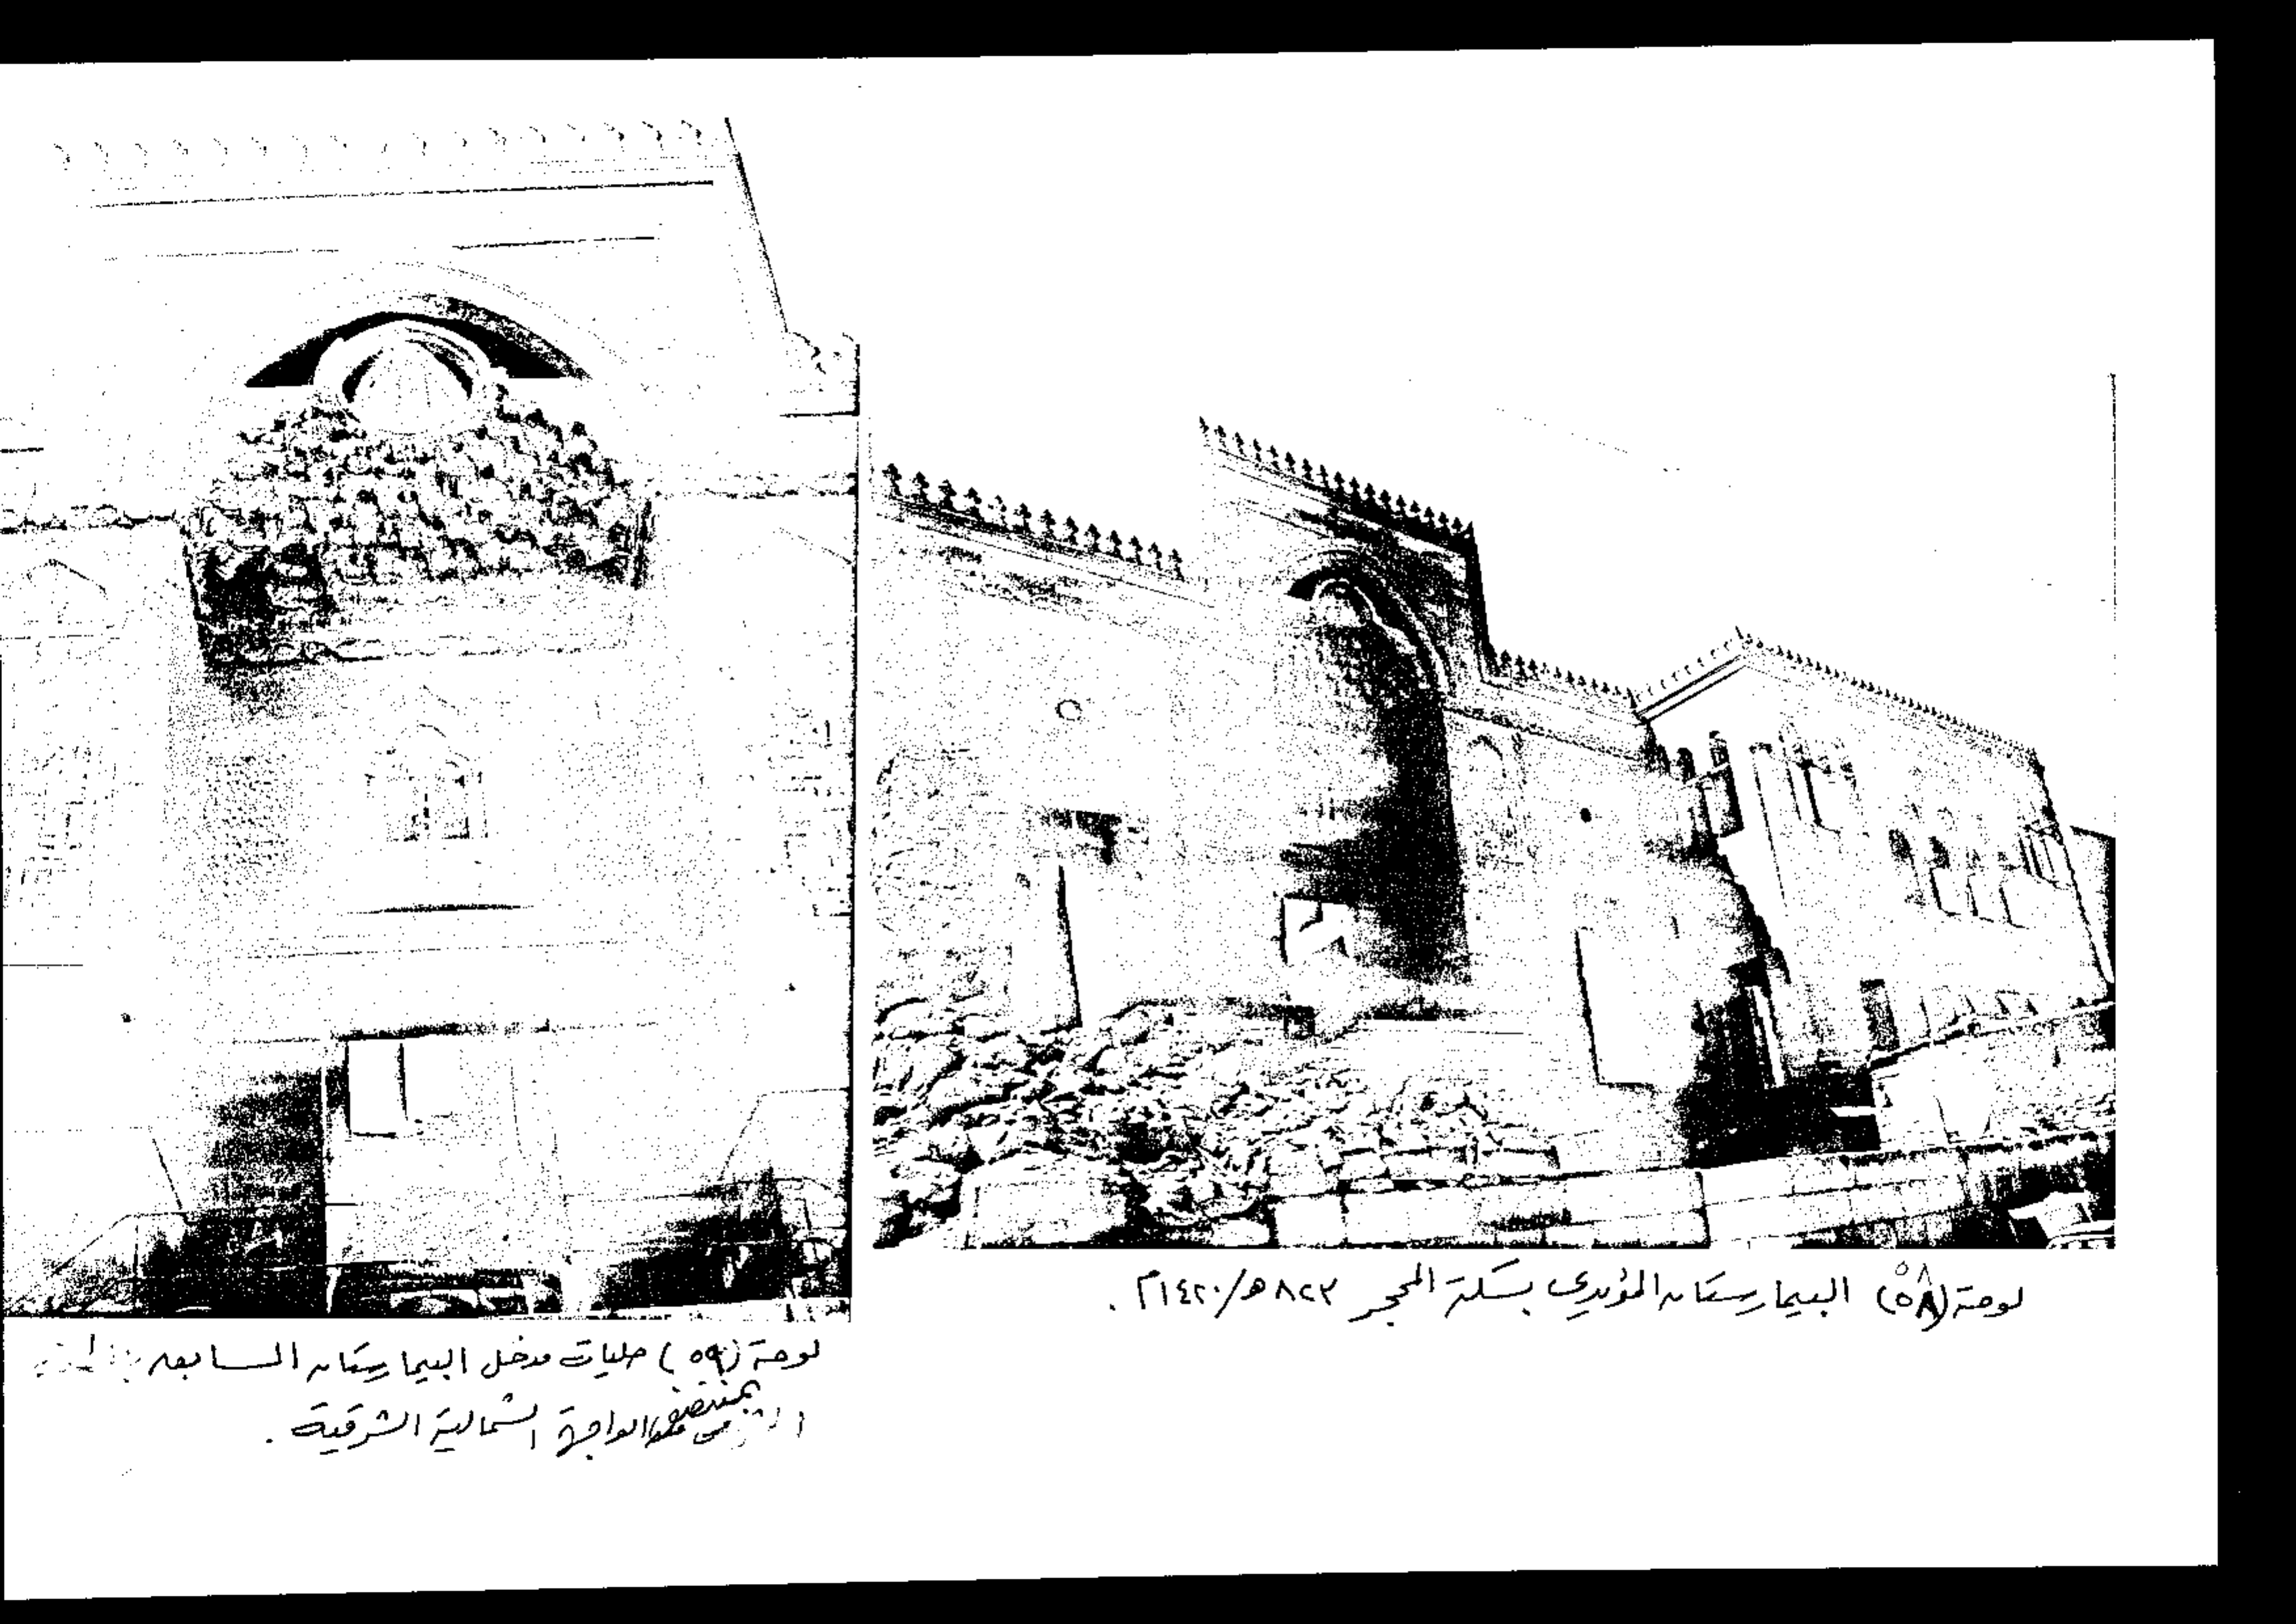 لوحة (٥٨) البيمارستان المؤيدي بسكة المحجر ٨٢٣هـ/١٤٢٠م .
لوحة (٥٩) حليات مدخل البيمارستان السابق
بمنتصف الواجهة الشمالية الشرقية .